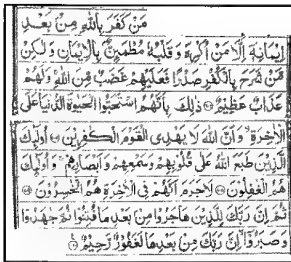 مَنْ كَفَرَ بِاللّٰهِ مِنْ بَعْدِ
اِيْمَانِهٖٓ اِلَّا مَنْ اُكْرِهَ وَقَلْبُهٗ مُطْمَئِنٌّۢ بِالْاِيْمَانِ وَلٰكِنْ
مَّنْ شَرَحَ بِالْكُفْرِ صَدْرًا فَعَلَيْهِمْ غَضَبٌ مِّنَ اللّٰهِ وَلَهُمْ
عَذَابٌ عَظِيْمٌ ۝ ذٰلِكَ بِاَنَّهُمُ اسْتَحَبُّوا الْحَيٰوةَ الدُّنْيَا عَلَى
الْاٰخِرَةِ وَاَنَّ اللّٰهَ لَا يَهْدِى الْقَوْمَ الْكٰفِرِيْنَ ۝ اُولٰٓئِكَ
الَّذِيْنَ طَبَعَ اللّٰهُ عَلٰى قُلُوْبِهِمْ وَسَمْعِهِمْ وَاَبْصَارِهِمْ وَاُولٰٓئِكَ
هُمُ الْغٰفِلُوْنَ ۝ لَاجَرَمَ اَنَّهُمْ فِى الْاٰخِرَةِ هُمُ الْخٰسِرُوْنَ ۝
ثُمَّ اِنَّ رَبَّكَ لِلَّذِيْنَ هَاجَرُوْا مِنْۢ بَعْدِ مَا فُتِنُوْا ثُمَّ جٰهَدُوْا
وَصَبَرُوْٓا اِنَّ رَبَّكَ مِنْۢ بَعْدِهَا لَغَفُوْرٌ رَّحِيْمٌ ۝